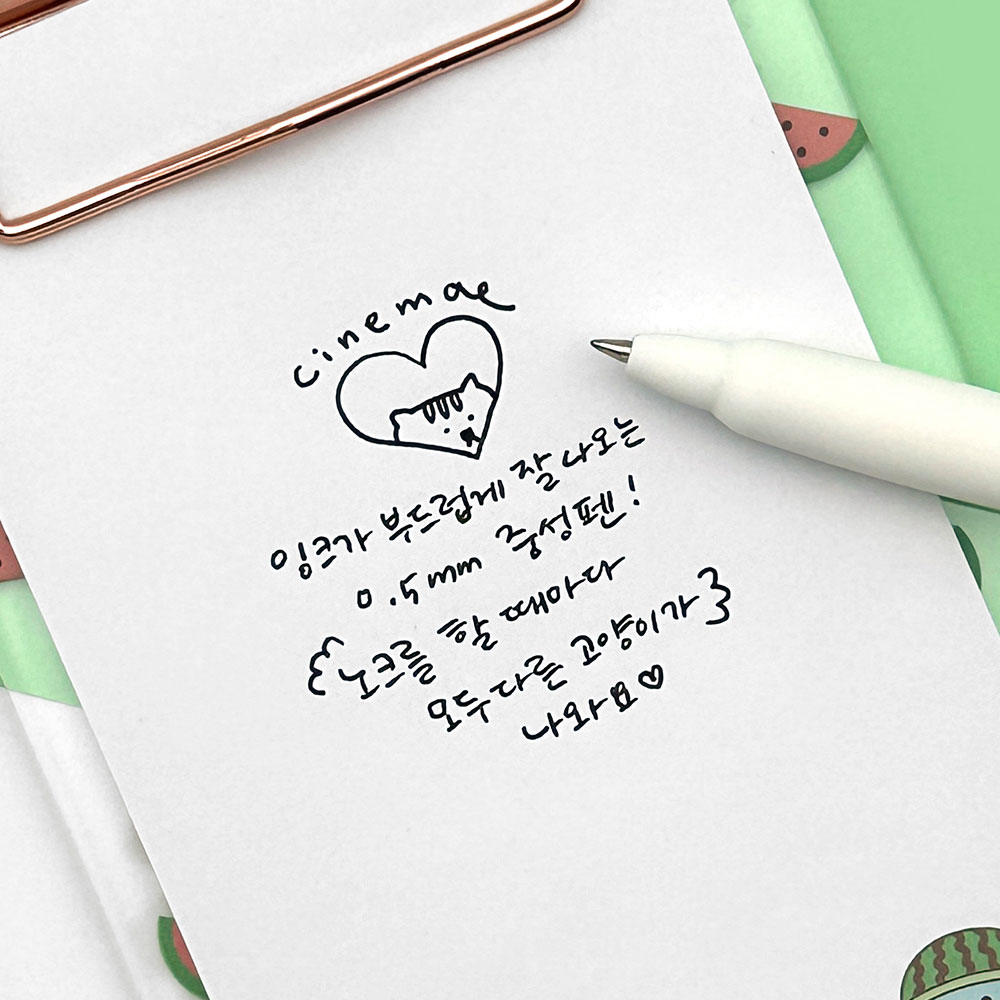 cinemae
잉크가 부드럽게 잘 나오는
0.5mm 중성펜!
노크를 할 때마다
모두 다른 고양이가
나와요♡